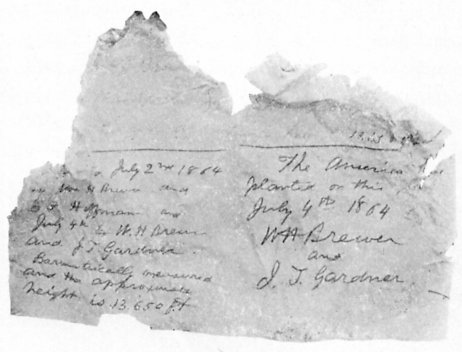 July 2nd 1864
Wm H Brewer and
Hoffmann and
July 4th by W. H Brewer
and J. T Gardner.
Barometrically measured
and the approximate
height is 13.650 ft
The American
planted on this
July 4th 1864
WH Brewer
and
J. T. Gardner.